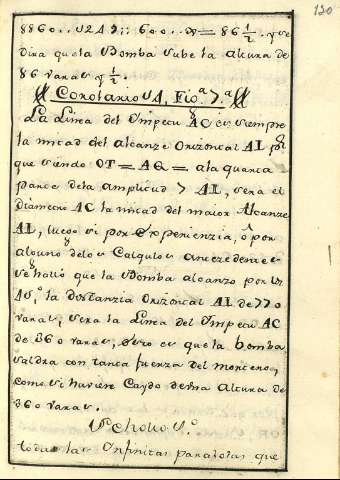 130
8860.. 5241;: 600.. = 86 1/2. y se
dira que la Bomba sube la altura de
86 varas y 1/2.
Corolario 1, Fig.a 7.a
La Linea del Impetu AC es siempre
la mitad del alcanze Orizontal AL por
que siendo OT = AQ = a la quarta
parte de la amplitud AL, sera el
diametro AC la mitad del maior Alcanze
AL, luego si por experienzia, o por
alguno de los Calculos antezedentes
se halló que la Bomba alcanzo por
45,° la distanzia Orizontal AL de 720
varas, sera la Linea del Impetu AC
de 360 varas, esto es que la bomba
saldra con tanta fuerza del mortero,
como si huviere Caydo de una altura de
360 varas.
Scholio
todas las Infinitas parabolas que